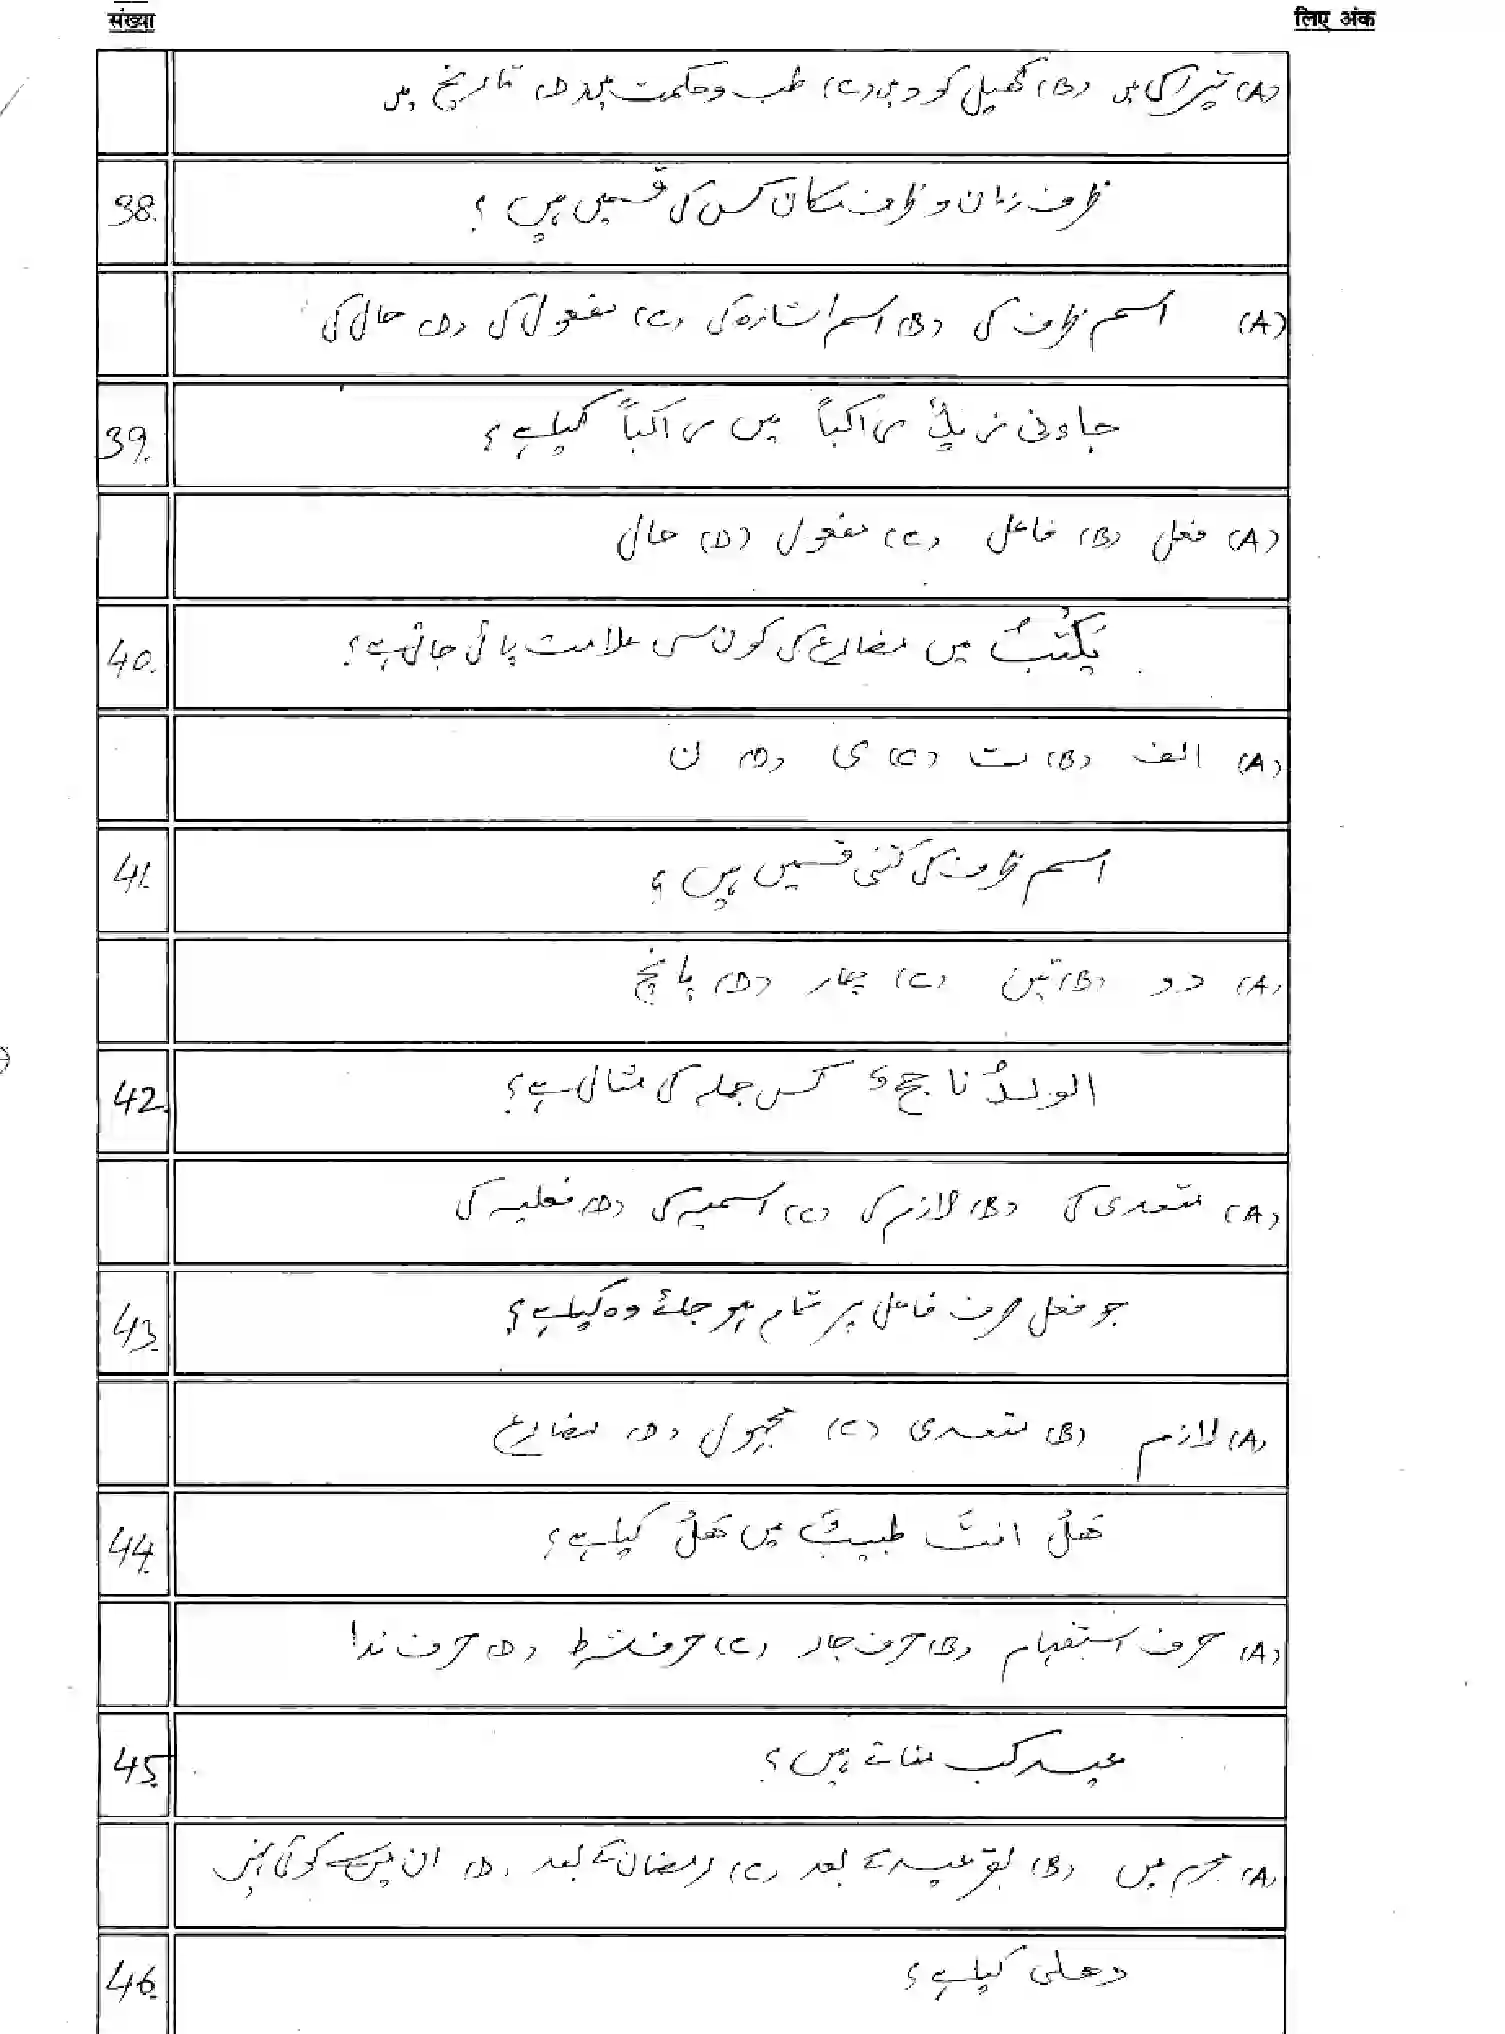 संख्या
लिए अंक
(A) تیراکی میں (B) کھیل کود میں (C) طب و حکمت میں (D) تاریخ میں
38. ظرف زمان و ظرف مکان کس کی قسمیں ہیں ؟
(A) اسم ظرف کی (B) اسم اشارہ کی (C) مفعول کی (D) حال کی
39. جاءنی زیدٌ راکباً میں راکباً کیا ہے ؟
(A) فعل (B) فاعل (C) مفعول (D) حال
40. یَکْتُبُ میں مضارع کی کون سی علامت پائی جاتی ہے ؟
(A) الف (B) ت (C) ی (D) ن
41. اسم ظرف کی کتنی قسمیں ہیں ؟
(A) دو (B) تین (C) چار (D) پانچ
42. الولدُ ناجح کس جملہ کی مثال ہے ؟
(A) متعدی کی (B) لازم کی (C) اسمیہ کی (D) فعلیہ کی
43. جو فعل صرف فاعل پر تمام ہو جائے وہ کیا ہے ؟
(A) لازم (B) متعدی (C) مجہول (D) مضارع
44. هَلْ انتَ طبیبٌ میں هَلْ کیا ہے ؟
(A) حرف استفہام (B) حرف جار (C) حرف شرط (D) حرف ندا
45. عید کب مناتے ہیں ؟
(A) محرم میں (B) بقر عید کے بعد (C) رمضان کے بعد (D) ان میں سے کوئی نہیں
46. دھلی کیا ہے ؟